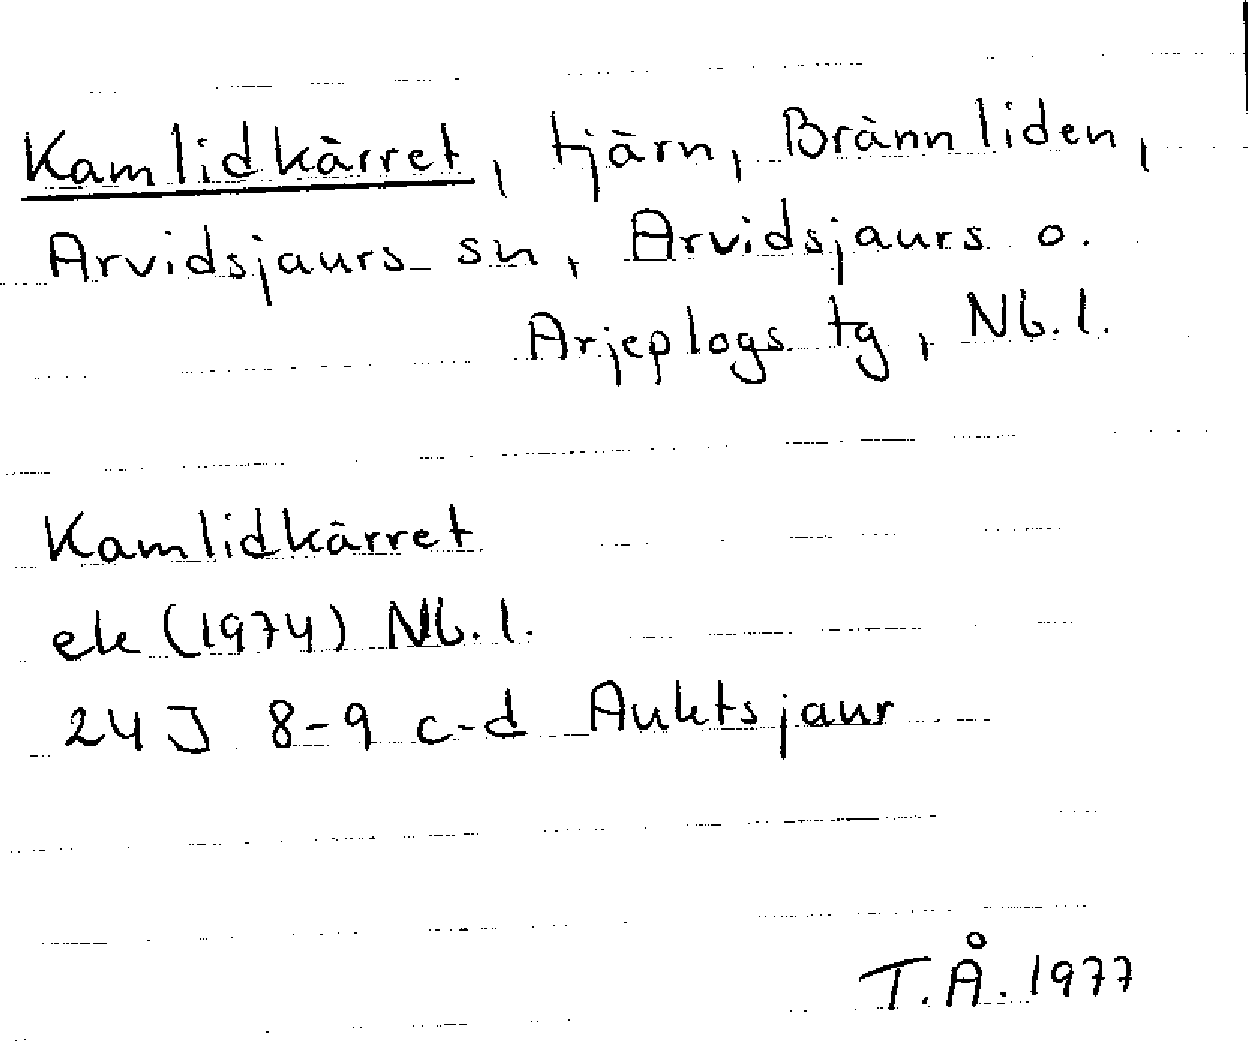 Kamlidkärret, tjärn, Brännliden,
Arvidsjaurs sn, Arvidsjaurs o.
Arjeplogs tg, Nb.l.
Kamlidkärret
ek (1974) Nb.l.
24J 8-9 c-d Auktsjaur
T.Å. 1977